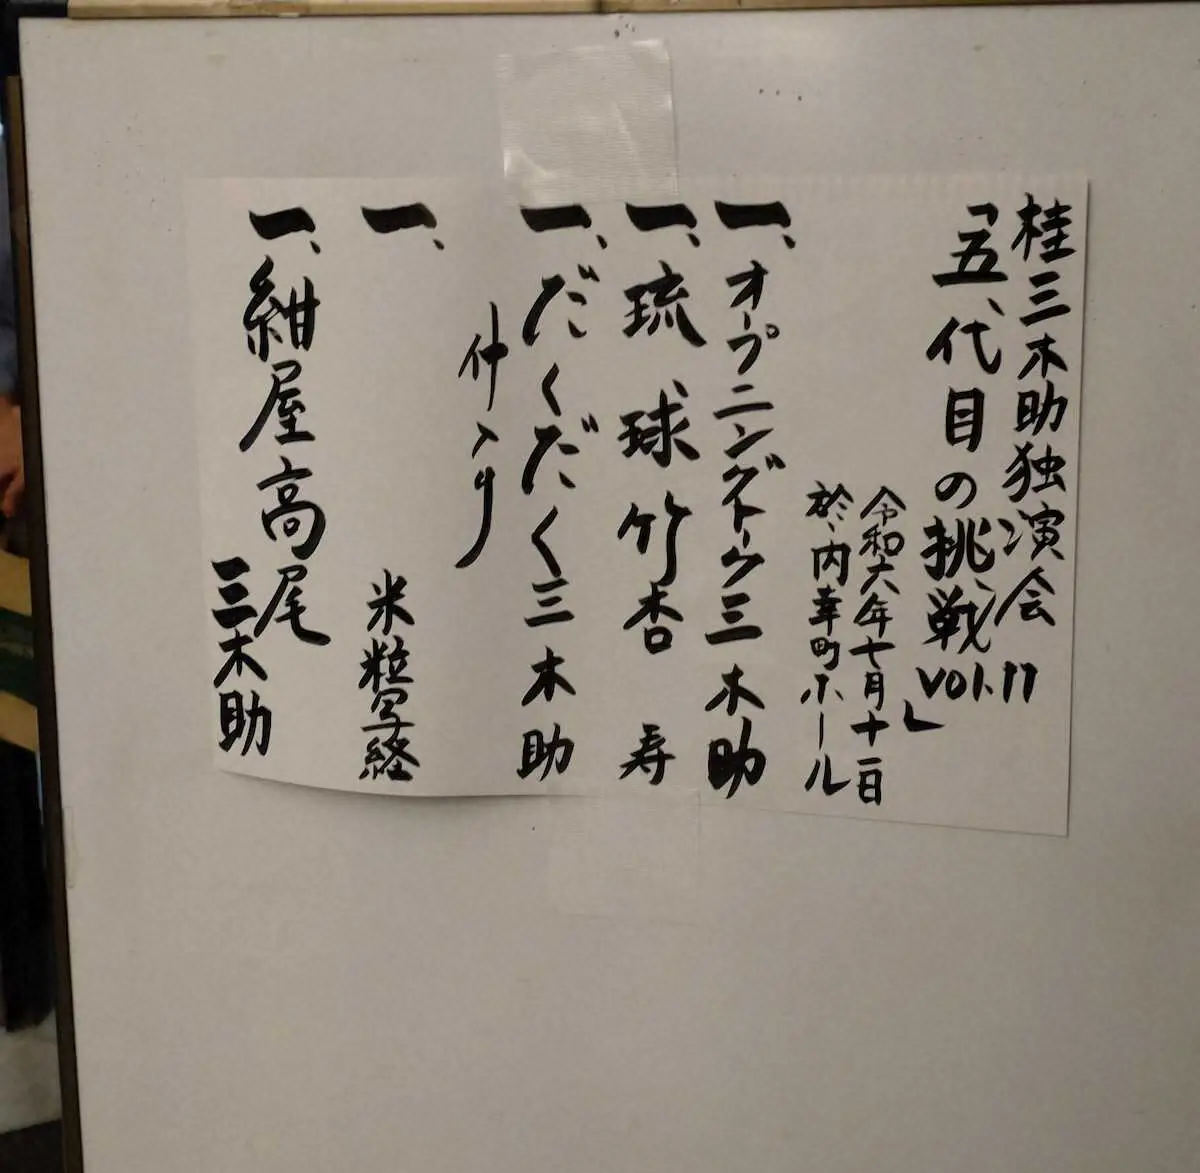 桂三木助独演会
「五代目の挑戦 vol.17」
令和六年七月十一日
於、内幸町ホール
一、オープニングトーク 三木助
一、琉球竹 杏寿
一、だくだく 三木助
仲入り
一、 米粒写経
一、紺屋高尾 三木助